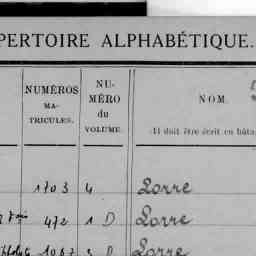 PERTOIRE ALPHABÉTIQUE.
NUMÉROS
MA-
TRICULES.
NU-
MÉRO
du
VOLUME.
NOM.
(Il doit être écrit en bâta
1703 4 Lorre
472 1 D Lorre
1067 3 D Lorre